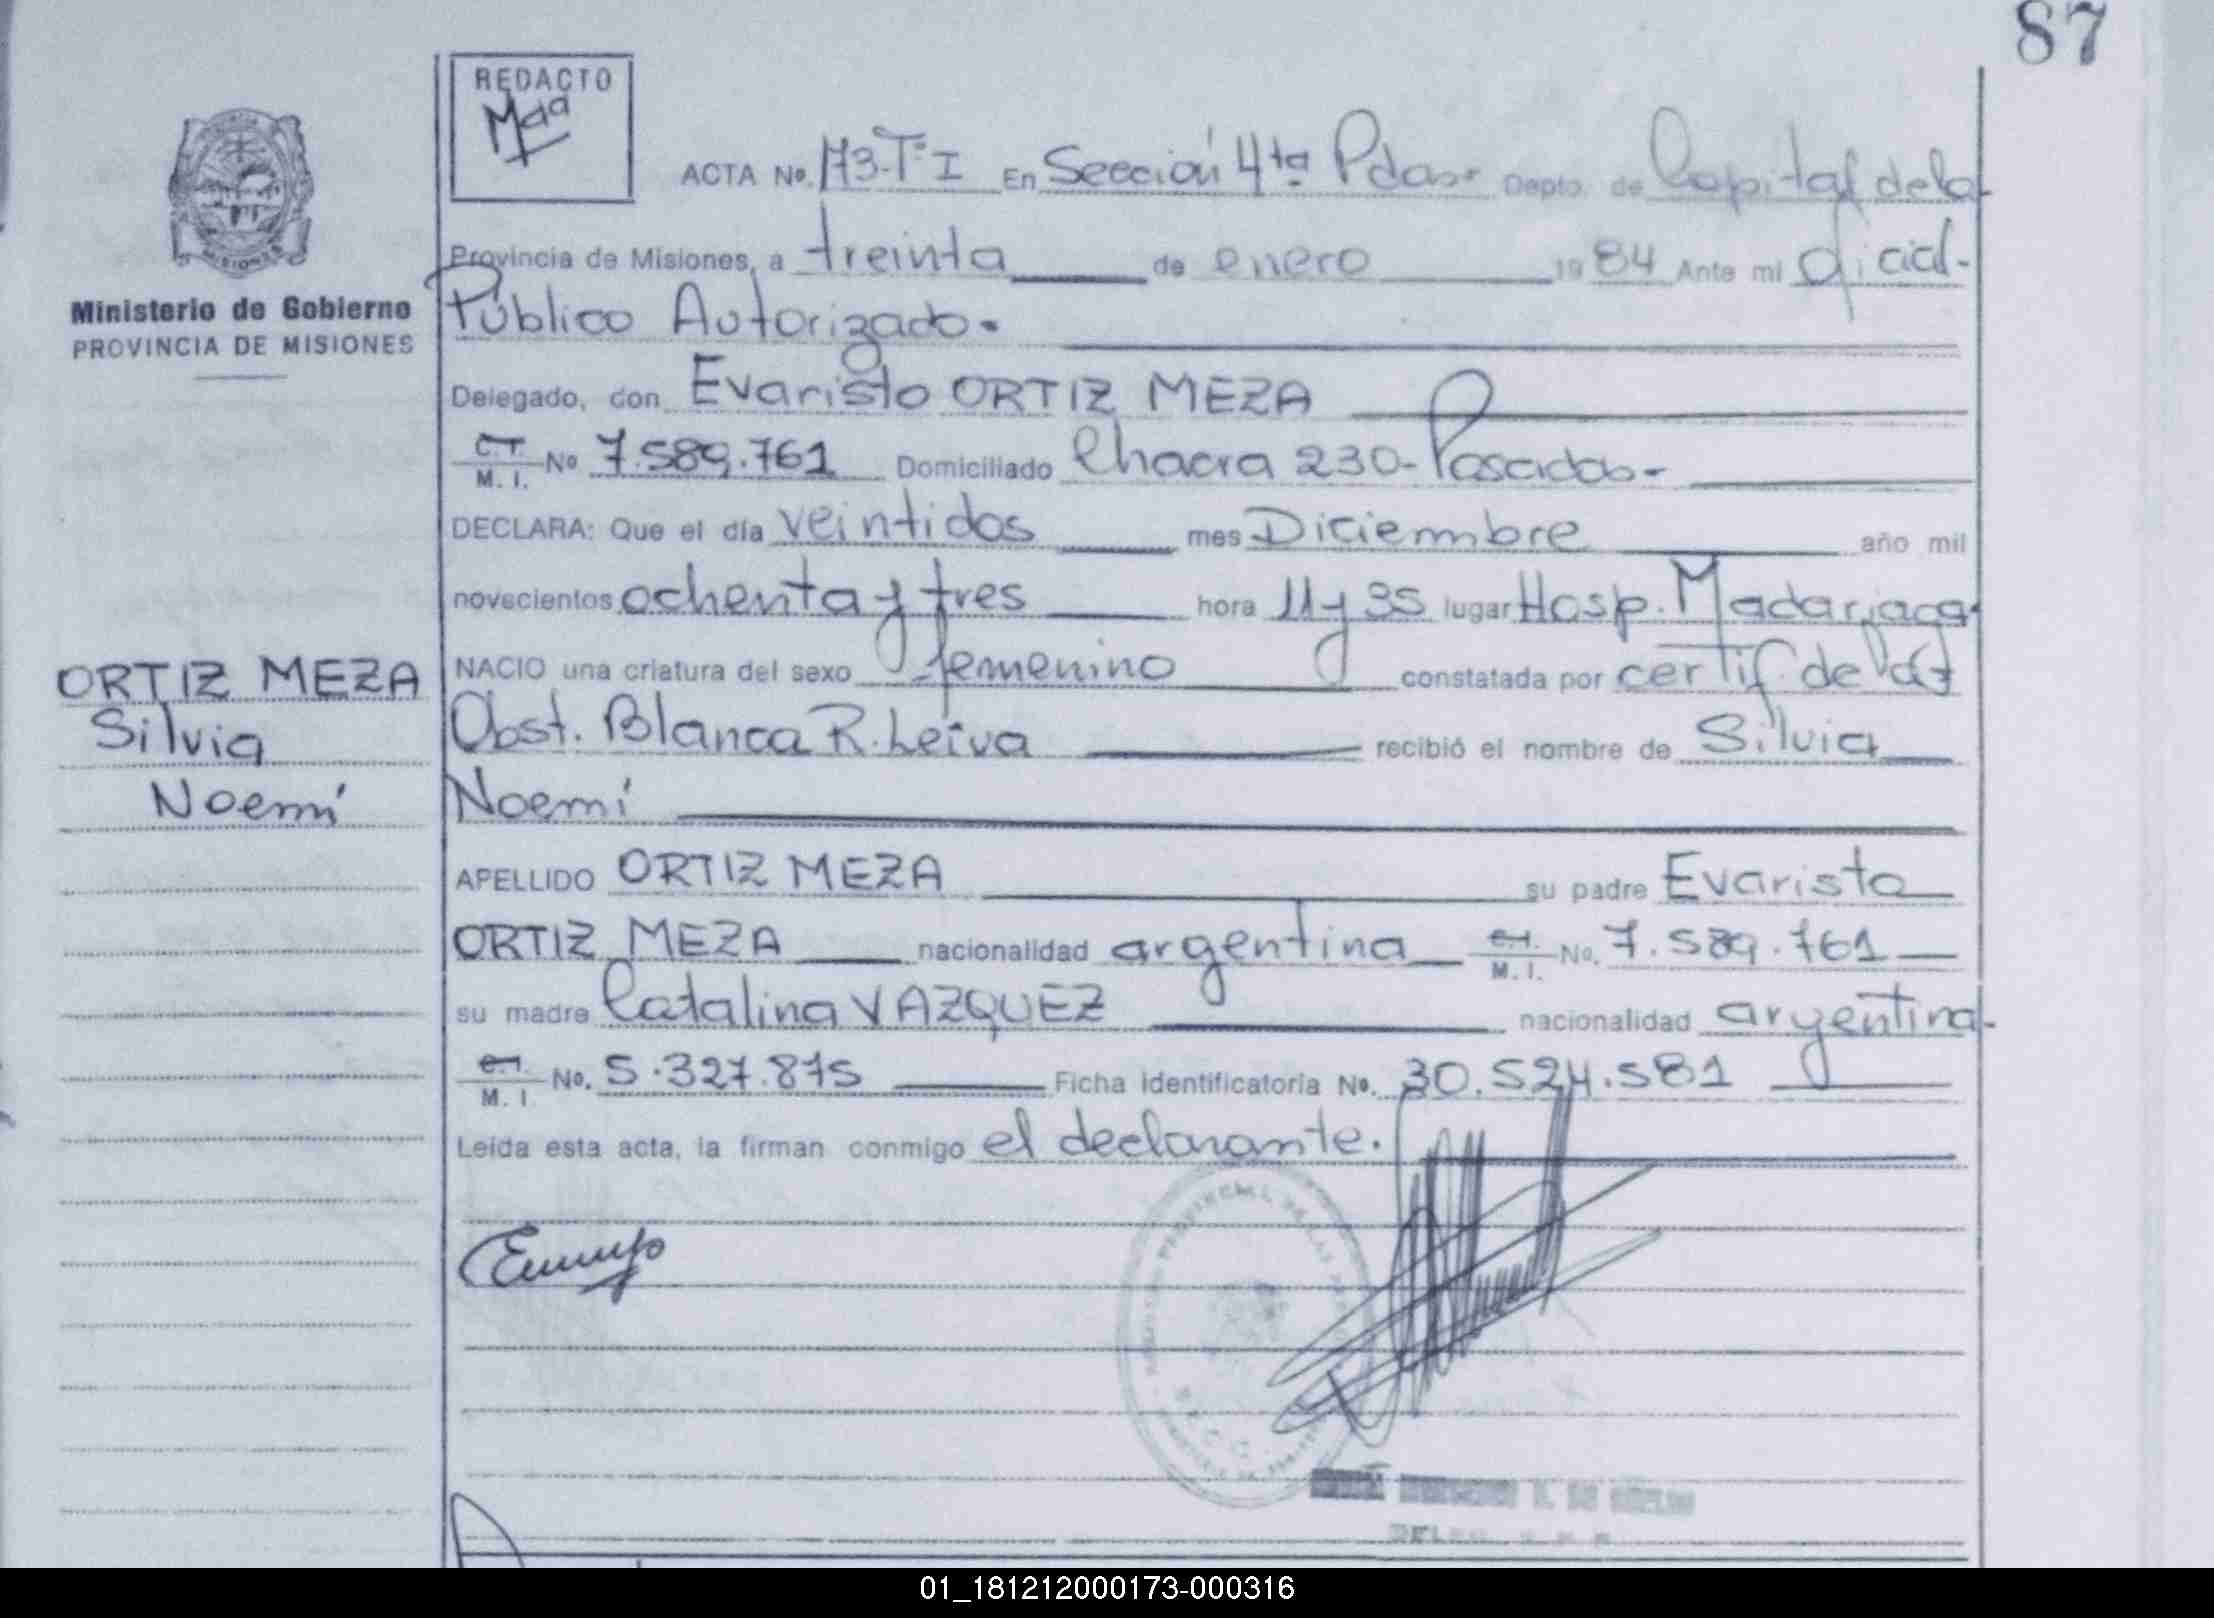 87
REDACTO
ACTA No. 173-Tº I En Sección 4ta Pdas. Depto. de Capital de la
Provincia de Misiones, a treinta de enero 19 84 Ante mi oficial
Público Autorizado.
Ministerio de Gobierno
PROVINCIA DE MISIONES
Delegado, don Evaristo ORTIZ MEZA
C.I. M.I. No 7.589.761 Domiciliado Chacra 230- Posadas-
DECLARA: Que el día veintidos mes Diciembre año mil
novecientos ochenta y tres hora 11 y 35 lugar Hosp. Madariaga
NACIO una criatura del sexo femenino constatada por certif. de la
Obst. Blanca R. Leiva recibió el nombre de Silvia
Noemí
ORTIZ MEZA
Silvia
Noemí
APELLIDO ORTIZ MEZA su padre Evaristo
ORTIZ MEZA nacionalidad argentina C.I. M.I. No. 7.589.761
su madre Catalina VAZQUEZ nacionalidad argentina-
C.I. M.I. No. 5.327.875 Ficha identificatoria No. 30.524.581
Leída esta acta, la firman conmigo el declarante.
01_181212000173-000316